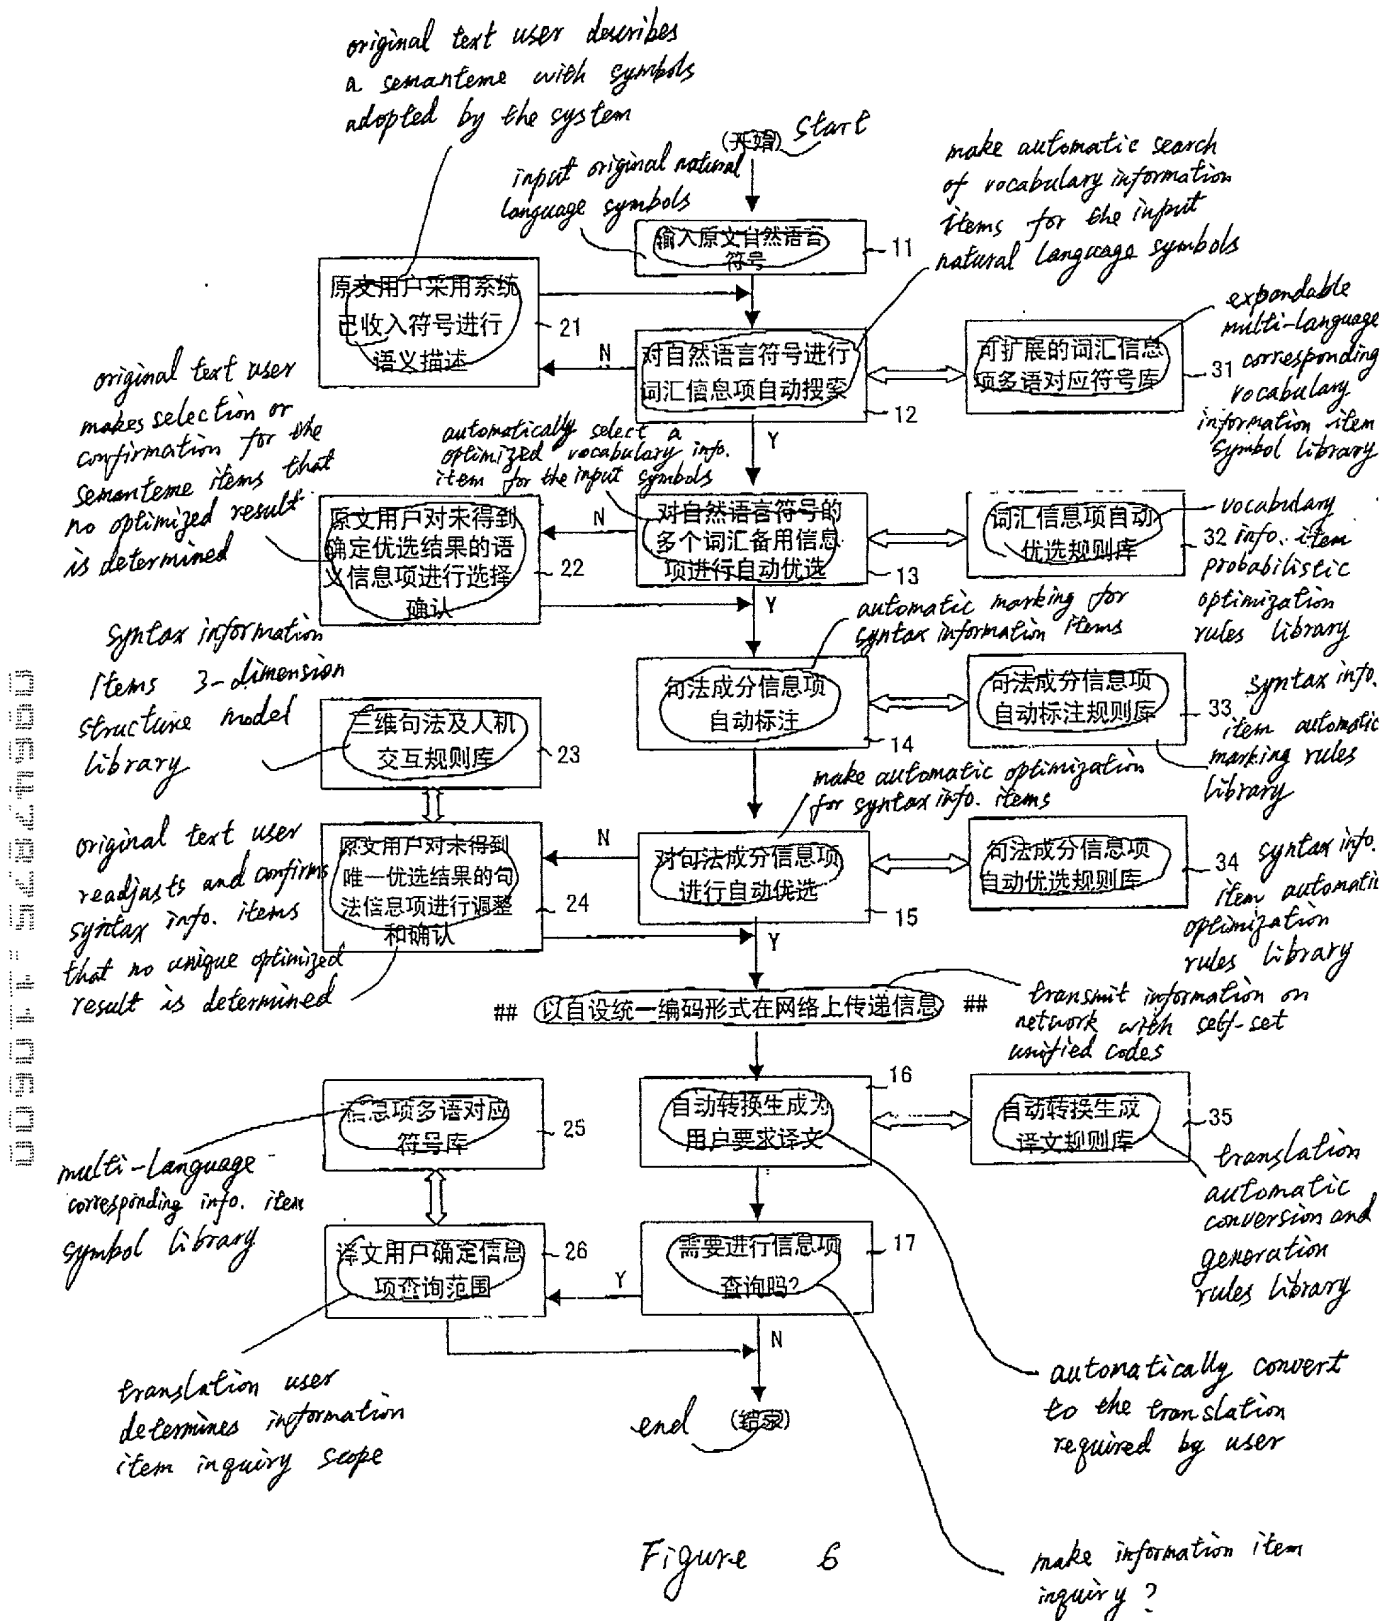 original text user describes
a semanteme with symbols
adopted by the system
(开始) start
input original natural
language symbols
make automatic search
of vocabulary information
items for the input
natural language symbols
输入原文自然语言
符号
11
原文用户采用系统
已收入符号进行
语义描述
21
N
对自然语言符号进行
词汇信息项自动搜索
12
可扩展的词汇信息
项多语对应符号库
31
expandable
multi-language
corresponding
vocabulary
information item
symbol library
original text user
makes selection or
confirmation for the
semanteme items that
no optimized result
is determined
automatically select a
optimized vocabulary info.
item for the input symbols
Y
原文用户对未得到
确定优选结果的语
义信息项进行选择
确认
22
N
对自然语言符号的
多个词汇备用信息
项进行自动优选
13
词汇信息项自动
优选规则库
32
vocabulary
info. item
probabilistic
optimization
rules library
Y
automatic marking for
syntax information items
syntax information
items 3-dimension
structure model
library
三维句法及人机
交互规则库
23
句法成分信息项
自动标注
14
句法成分信息项
自动标注规则库
33
syntax info.
item automatic
marking rules
library
make automatic optimization
for syntax info. items
original text user
readjusts and confirms
syntax info. items
that no unique optimized
result is determined
原文用户对未得到
唯一优选结果的句
法信息项进行调整
和确认
24
N
对句法成分信息项
进行自动优选
15
句法成分信息项
自动优选规则库
34
syntax info.
item automatic
optimization
rules library
Y
## 以自设统一编码形式在网络上传递信息 ##
transmit information on
network with self-set
unified codes
信息项多语对应
符号库
25
自动转换生成为
用户要求译文
16
自动转换生成
译文规则库
35
multi-language
corresponding info. item
symbol library
translation
automatic
conversion and
generation
rules library
译文用户确定信息
项查询范围
26
Y
需要进行信息项
查询吗?
17
N
translation user
determines information
item inquiry scope
end (结束)
automatically convert
to the translation
required by user
make information item
inquiry?
Figure 6